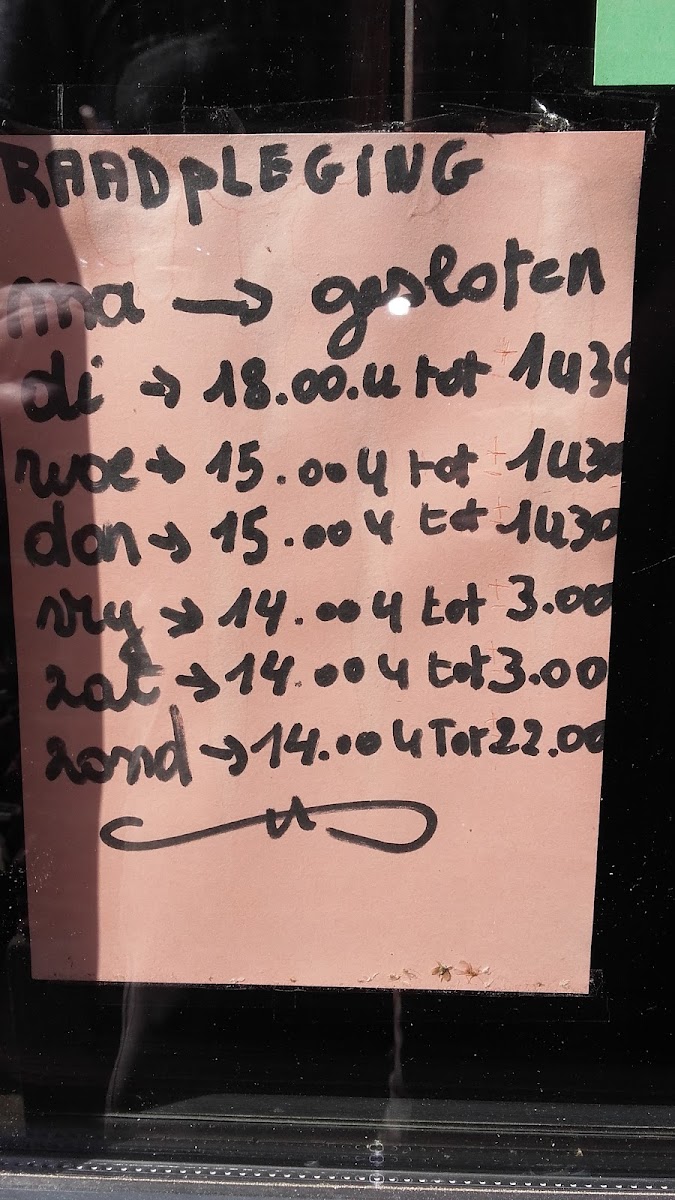 RAADPLEGING
ma → gesloten
di → 18.00.u tot ± 1u30
woe → 15.00u tot ± 1u30
don → 15.00u tot ± 1u30
vry → 14.00u tot ± 3.00
zat → 14.00u tot ± 3.00
zond → 14.00u Tot 22.00